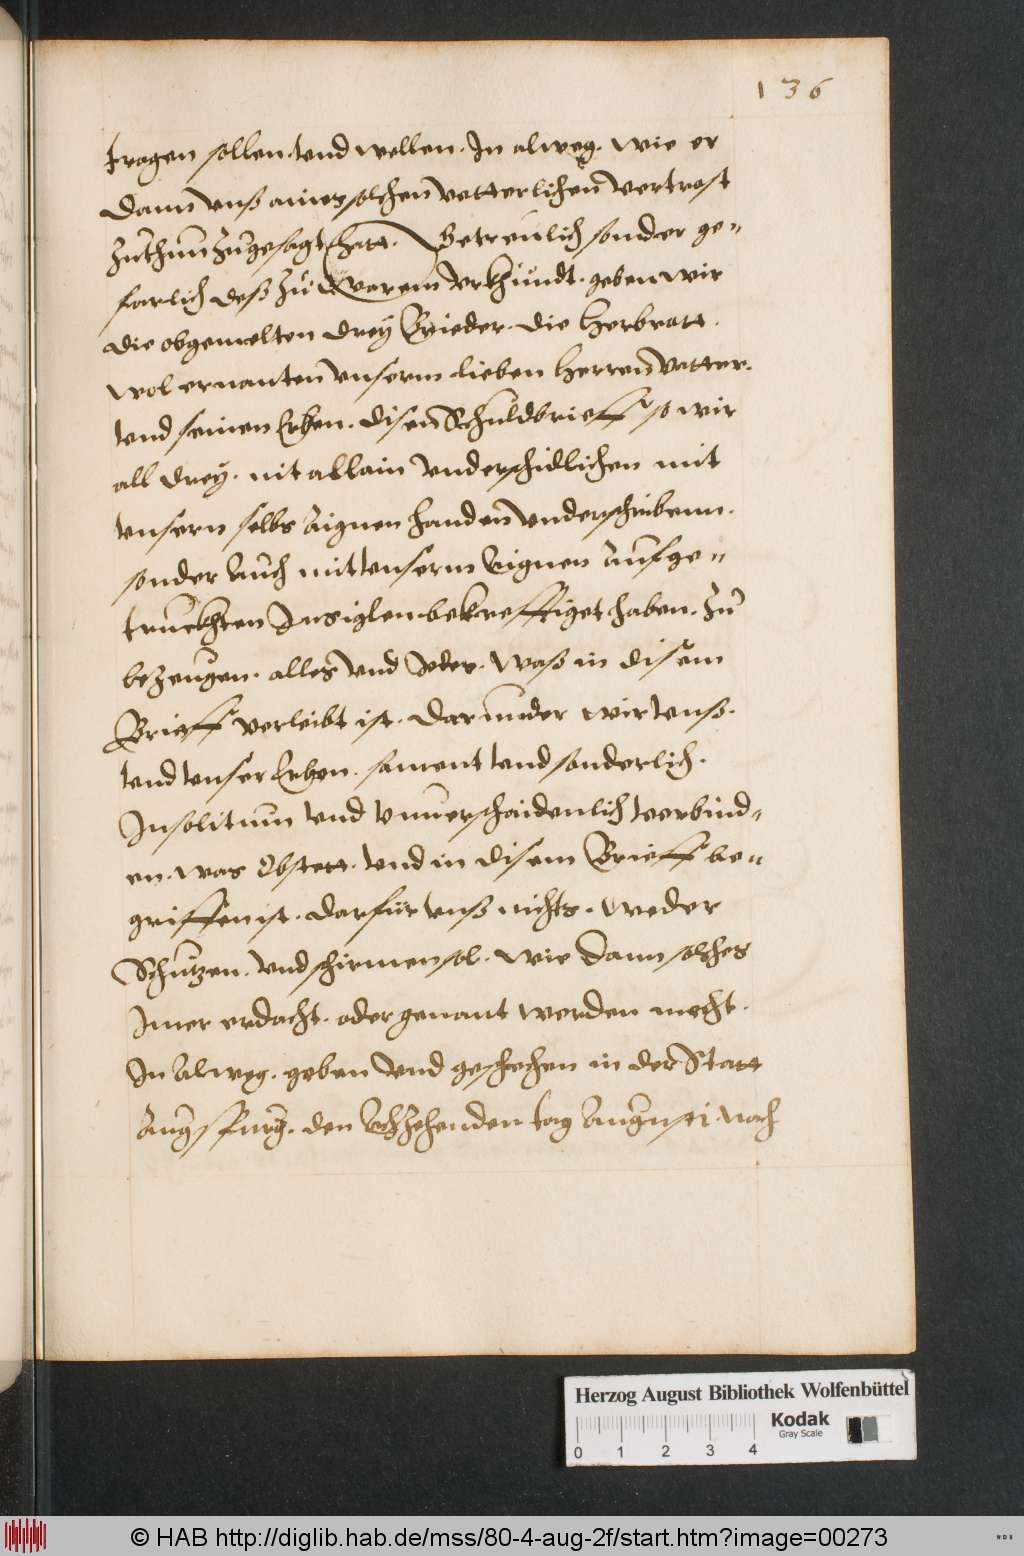 136
tragen sollen. vnd wellen. In alweg. wie er
dann vnß ainer solchen vetterlichen vertrost
zuthun zugesagt hatt. Getreulich sonder ge=
farlich deß zu warem vrkhundt. geben wir
die obgemelten drey Brieder. die Herbrott.
wol ernanten vnserm lieben Herren vetter.
vnd seinen Erben. disen Schuldbrieff so wir
all drey. nit allain vnderschidlichen mit
vnsern selbs Aignen handen vnderschribenn.
sonder Auch mit vnserm Aignen Aufge=
truckhten Insiglen bekrefftiget haben. zu
bezeugen. alles vnd Jdes. waß in disem
Brieff verleibt ist. darunder wir vnß.
vnd vnser Erben. sament vnd sonderlich.
Insolitum vnd vnuerschaidenlich verbind=
en. was Obstett. vnd in disem Brieff be=
griffen ist. darfür vnß nichts. weder
Schutzen. vnd schirmen sol. wie dann solches
Imer erdacht. oder genant werden mecht.
In Alweg. geben vnd geschehen in der Statt
Augspurg. den Achzehenden tag Augusti. Nach
Herzog August Bibliothek Wolfenbüttel
Kodak
Gray Scale
0 1 2 3 4
© HAB http://diglib.hab.de/mss/80-4-aug-2f/start.htm?image=00273